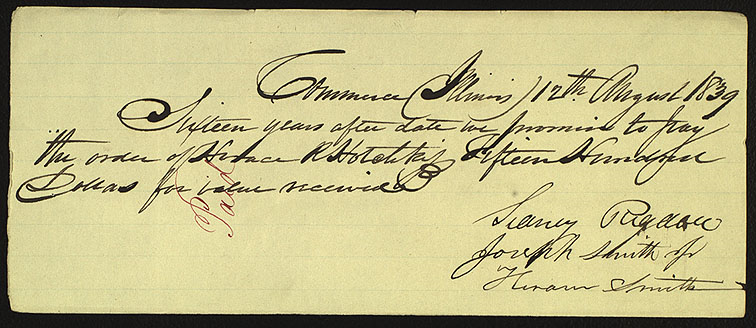 Commerce (Illinois) 12th August 1839
Sixteen years after date we promise to pay
the order of Horace R Hotchkiss Fifteen Hundred
Dollars for value received
Paid
Sidney Rigdon
Joseph Smith Jr
Hiram Smith